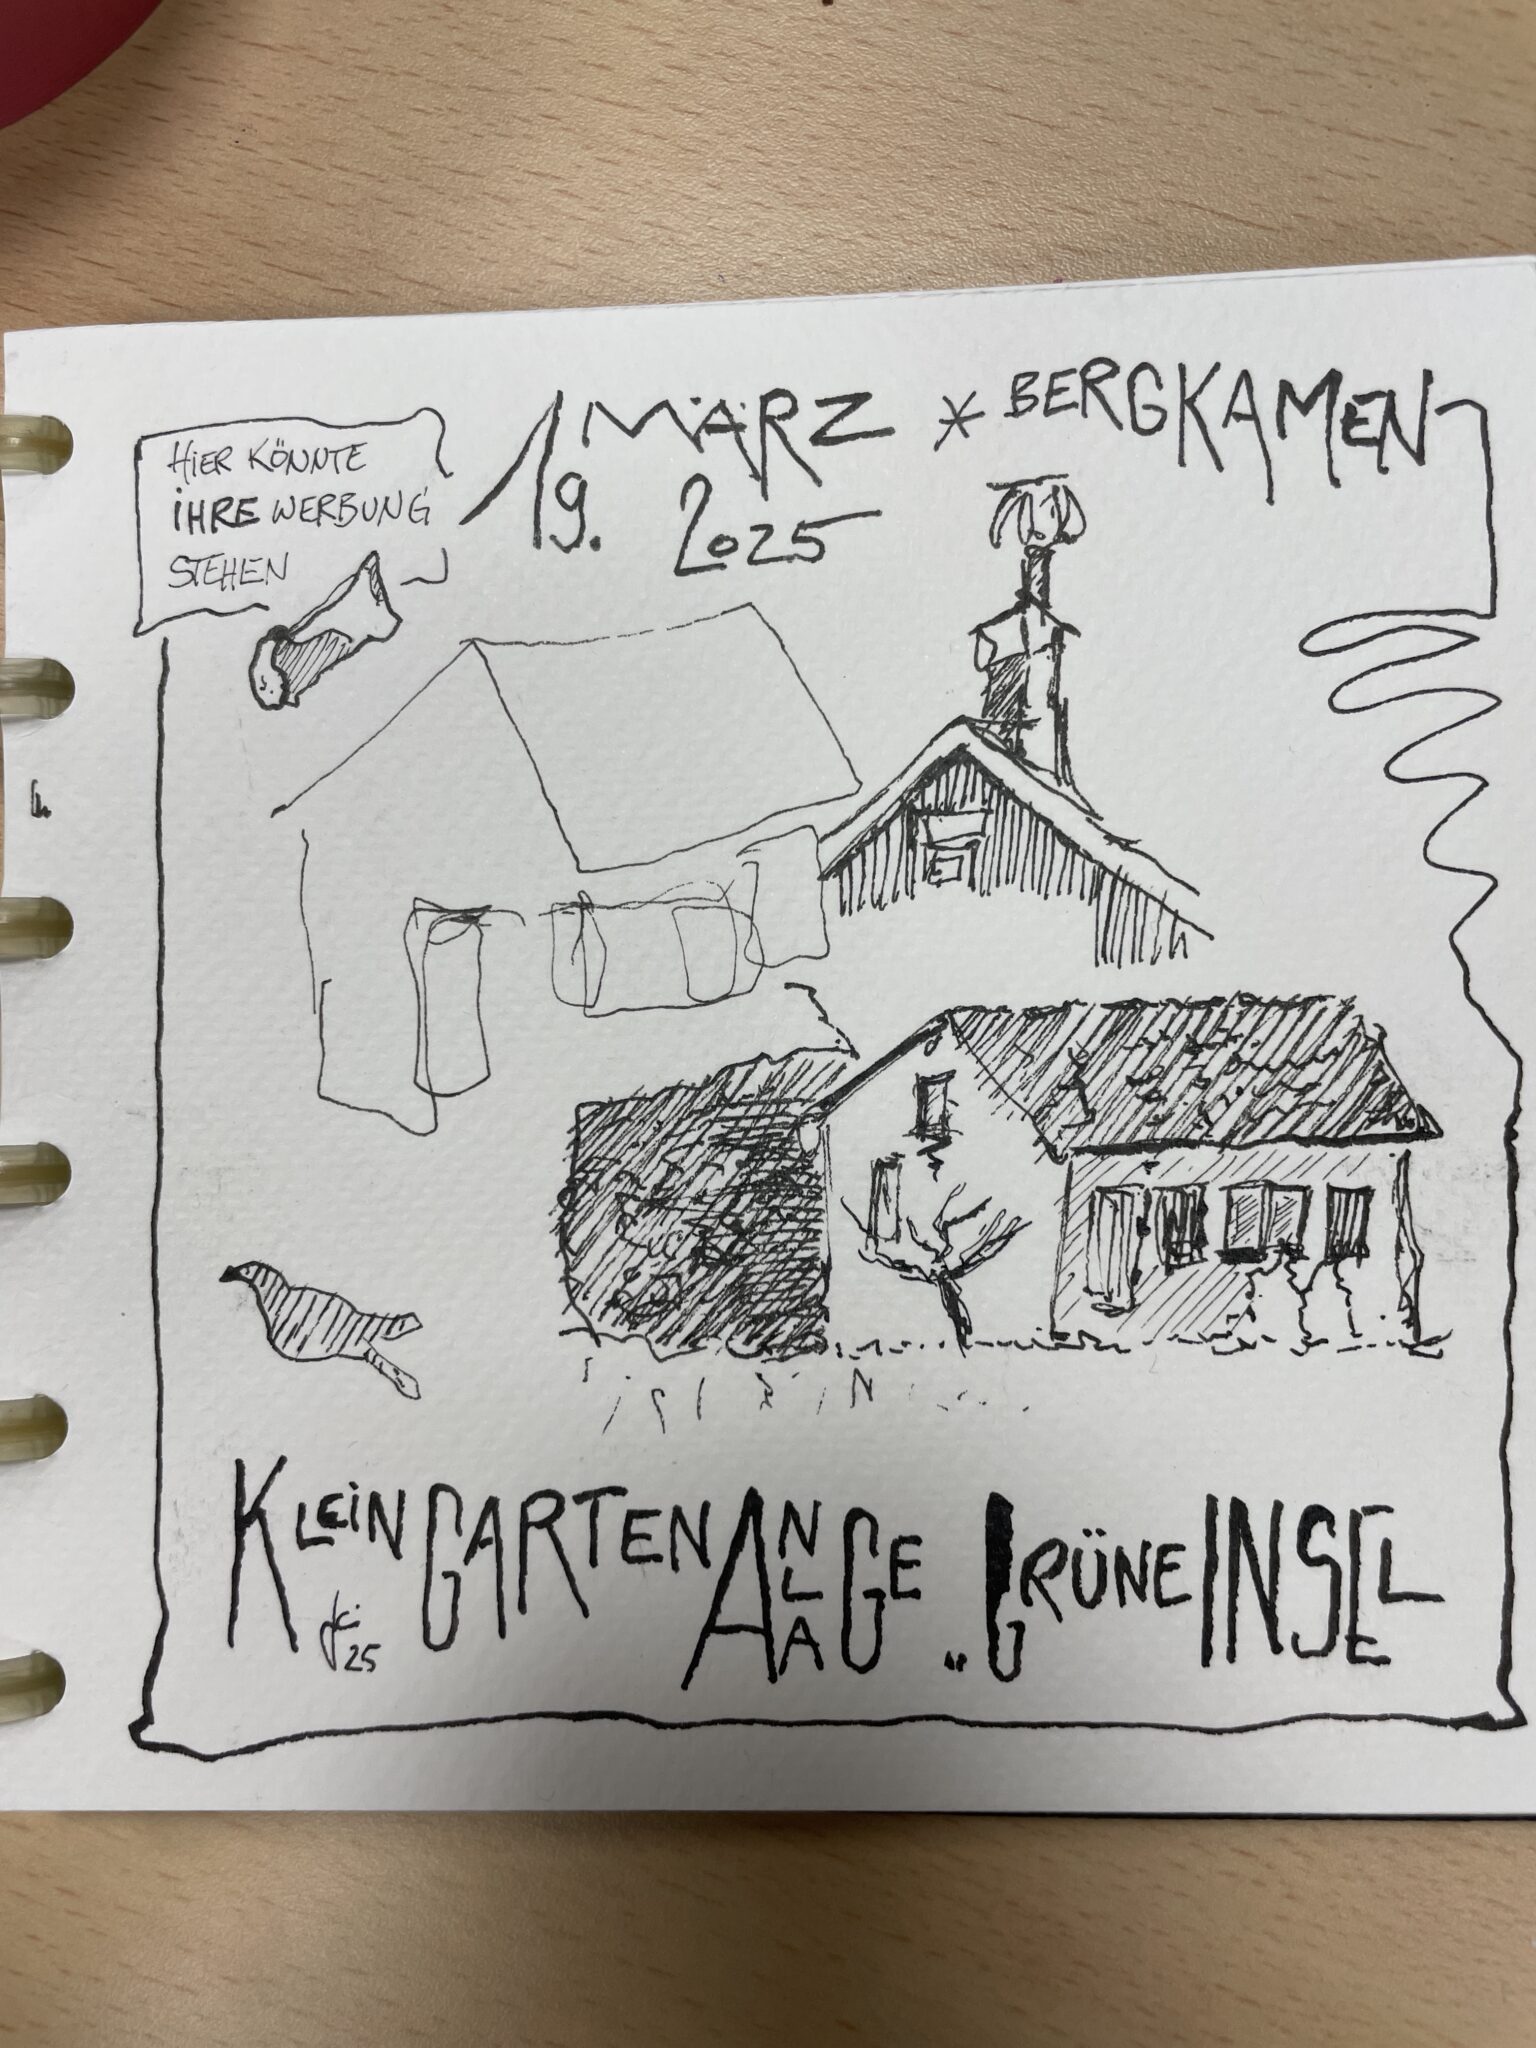 HIER KÖNNTE
IHRE WERBUNG
STEHEN
19. MÄRZ 2025 * BERGKAMEN
KLEINGARTENANLAGE „GRÜNE INSEL
25